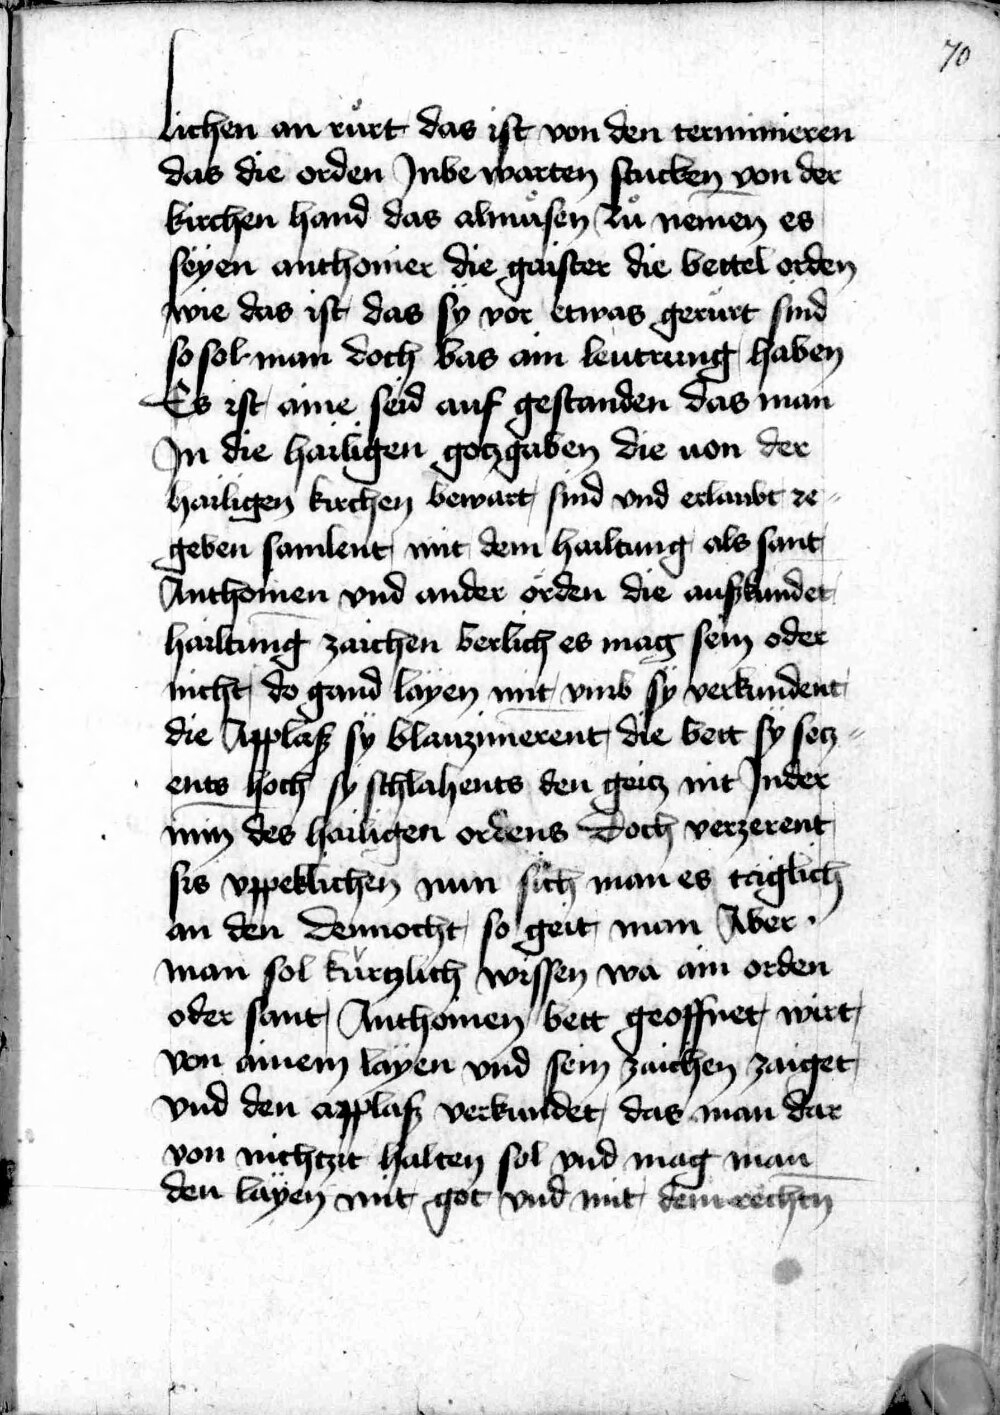 70
lichen an růrt das ist von den terminieren
das die orden Jnbe warten stucken von der
kirchen hand das almůsen zů nemen es
seÿen anthonier die gaister die bettel orden
wie das ist das sÿ vor etwas gerůrt sind
so sol man doch bas ain leutrung haben
Es ist aine seid auf gestanden das man
Jn die hailigen gotzgaben die uon der
hailigen kirchen bewart sind vnd erlaubt ze-
geben samlent mit dem hailtung als sant
Anthonien vnd ander örden die auszkündet
hailtung zaichen verlich es mag sein oder
nicht do gand laÿen mit vmb sÿ verkundent
die Applasz sÿ blanzinierent die bett sÿ setz-
ents hoch sÿ schlahents den geitz nit Jnder
min des hailigen ordens Doch verzerent
sis vppeklichen nun sich man es täglich
an den dennocht so geit man Aber
man sol kürtzlich wissen wa ain orden
oder sant Anthonien bett geoffnet wirt
von ainem laÿen vnd sein zaichen zaiget
vnd den applasz verkundet das man dar
von nichtzit halten sol vnd mag man
den laÿen mit got vnd mit dem rechtn